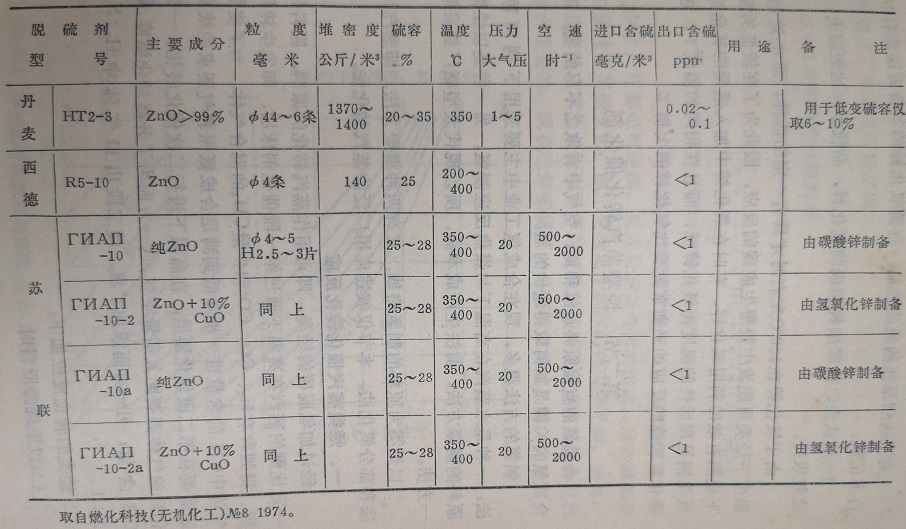 脱硫剂型号 主要成分 粒度毫米 堆密度公斤/米³ 硫容% 温度℃ 压力大气压 空速时⁻¹ 进口含硫毫克/米³ 出口含硫ppm 用途 备注
丹麦 HT2-3 ZnO>99% φ44~6条 1370~1400 20~35 350 1~5 0.02~0.1 用于低变硫容仅取6~10%
西德 R5-10 ZnO φ4条 140 25 200~400 <1
苏联 ГИАП-10 纯ZnO φ4~5 H2.5~3片 25~28 350~400 20 500~2000 <1 由碳酸锌制备
ГИАП-10-2 ZnO+10%CuO 同上 25~28 350~400 20 500~2000 <1 由氢氧化锌制备
ГИАП-10a 纯ZnO 同上 25~28 350~400 20 500~2000 <1 由碳酸锌制备
ГИАП-10-2a ZnO+10%CuO 同上 25~28 350~400 20 500~2000 <1 由氢氧化锌制备
取自燃化科技(无机化工)№8 1974。